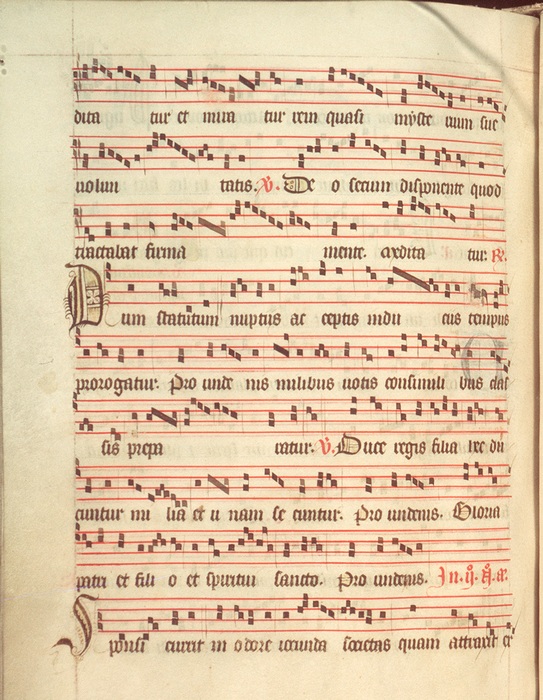 dita tur et mira tur rem quasi miste rium sue
uolun tatis. V. De o secum disponente quod
tractabat firma mente. credita tur. R.
Dum statutum nuptiis ac ceptis indu cus tempus
prorogatur. Pro unde nis milibus uotis consimili bus
sis prepa ratur. V. Duce regis filia tre du
cuntur mi lia et u nam se cuntur. Pro undenis. Gloria
patri et fili o et spiritui sancto. Pro undenis. In. ij. N. a.
Sponsi currit in odore iocunda societas quam attraxit